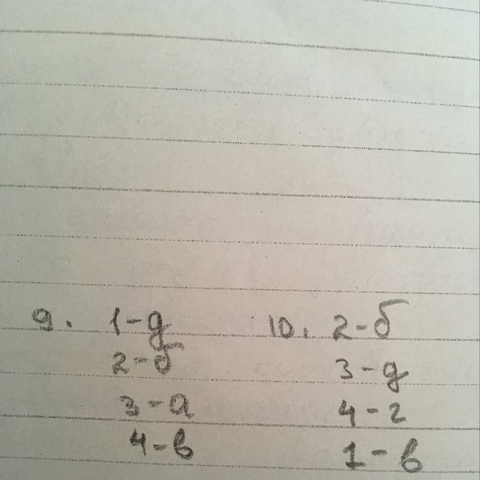 9. 1-д 10. 2-б
2-б 3-д
3-а 4-г
4-в 1-в